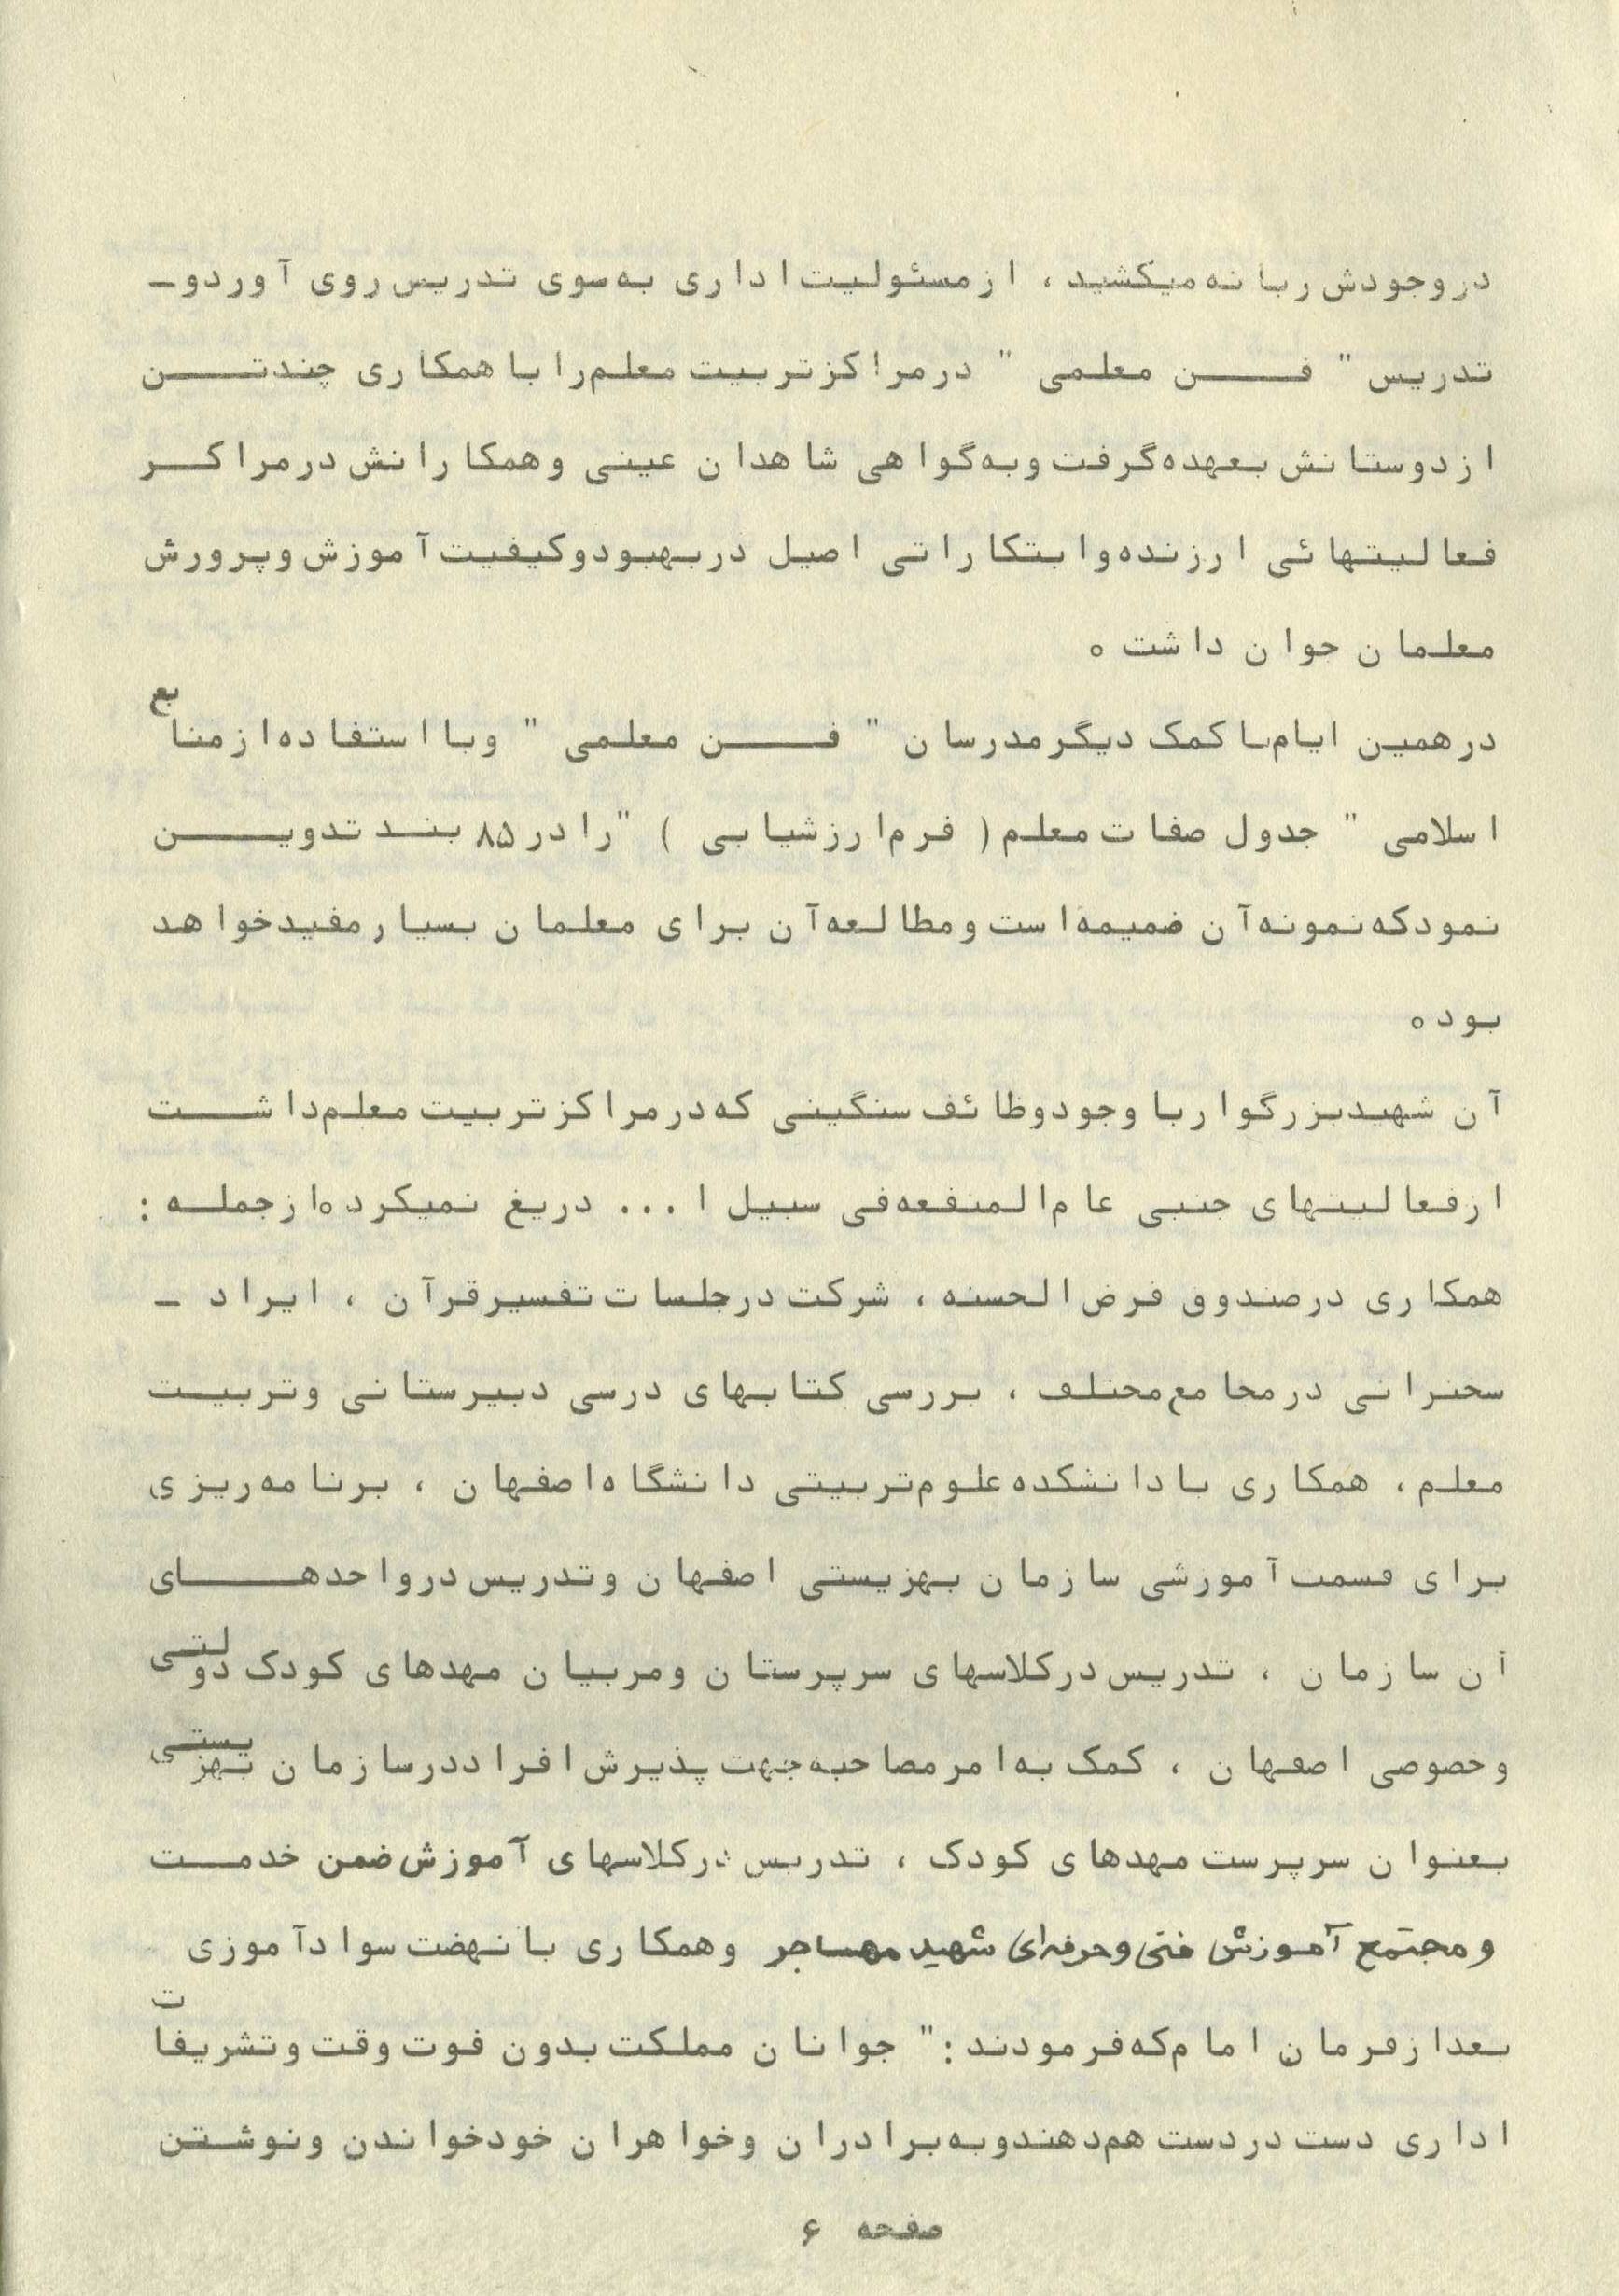 در وجودش ربانه میکشید ، از مسئولیت اداری به سوی تدریس روی آورد و ـ
تدریس " فـــن معلمی " در مراکز تربیت معلم را با همکاری چند تـــن
از دوستانش بعهده گرفت و به گواهی شاهدان عینی و همکارانش در مراکــر
فعالیتهائی ارزنده و ابتکاراتی اصیل در بهبود و کیفیت آموزش و پرورش
معلمان جوان داشت ٥
در همین ایام با کمک دیگر مدرسان " فـــن معلمی " و با استفاده از منابع
اسلامی " جدول صفات معلم ( فرم ارزشیابی ) " را در ۸۵ بنــد تدویـــن
نمود که نمونه آن ضمیمه است و مطالعه آن برای معلمان بسیار مفید خواهد
بود ٥
آن شهید بزرگوار با وجود وظائف سنگینی که در مراکز تربیت معلم داشــت
از فعالیتهای جنبی عام المنفعه فی سبیل ا ... دریغ نمیکرد ٥ از جملــه :
همکاری در صندوق قرض الحسنه ، شرکت در جلسات تفسیر قرآن ، ایراد ـ
سخنرانی در مجامع مختلف ، بررسی کتابهای درسی دبیرستانی و تربیــت
معلم ، همکاری با دانشکده علوم تربیتی دانشگاه اصفهان ، برنامه ریزی
برای قسمت آموزشی سازمان بهزیستی اصفهان و تدریس در واحدهـــای
آن سازمان ، تدریس در کلاسهای سرپرستان و مربیان مهدهای کودک دولتی
و خصوصی اصفهان ، کمک به امر مصاحبه جهت پذیرش افراد در سازمان بهزیستی
بعنوان سرپرست مهدهای کودک ، تدریس در کلاسهای آموزش ضمن خدمــت
و مجتمع آموزش فنی و حرفه‌ای شهید مهاجر و همکاری با نهضت سوادآموزی
بعد از فرمان امام که فرمودند : " جوانان مملکت بدون فوت وقت و تشریفات
اداری دست در دست هم دهند و به برادران و خواهران خود خواندن و نوشتن
صفحه ۶